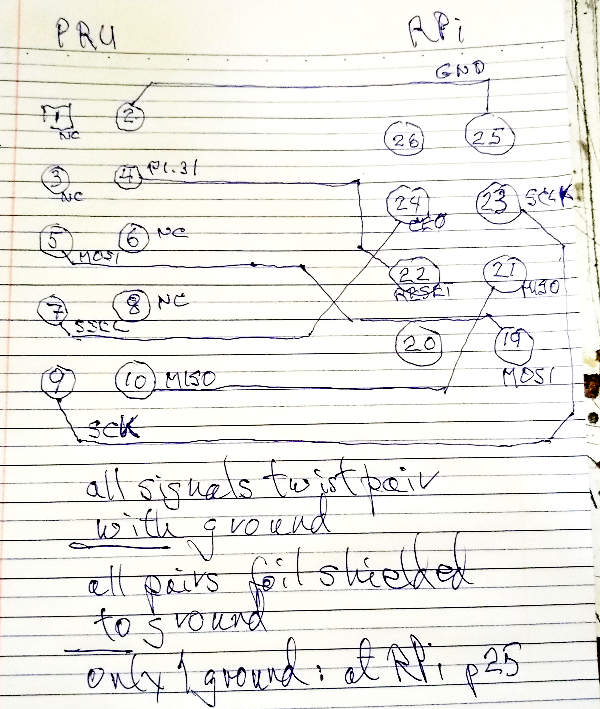 PRU RPi
GND
1 2
NC
26 25
3 4 P1.31
NC
24 23 SCLK
CEO
5 6 NC
MOSI
22 21
RESET MISO
7 8 NC
SSEL
20 19
MOSI
9 10 MISO
SCK
all signals twist pair
with ground
all pairs foil shielded
to ground
only 1 ground: at RPi p25